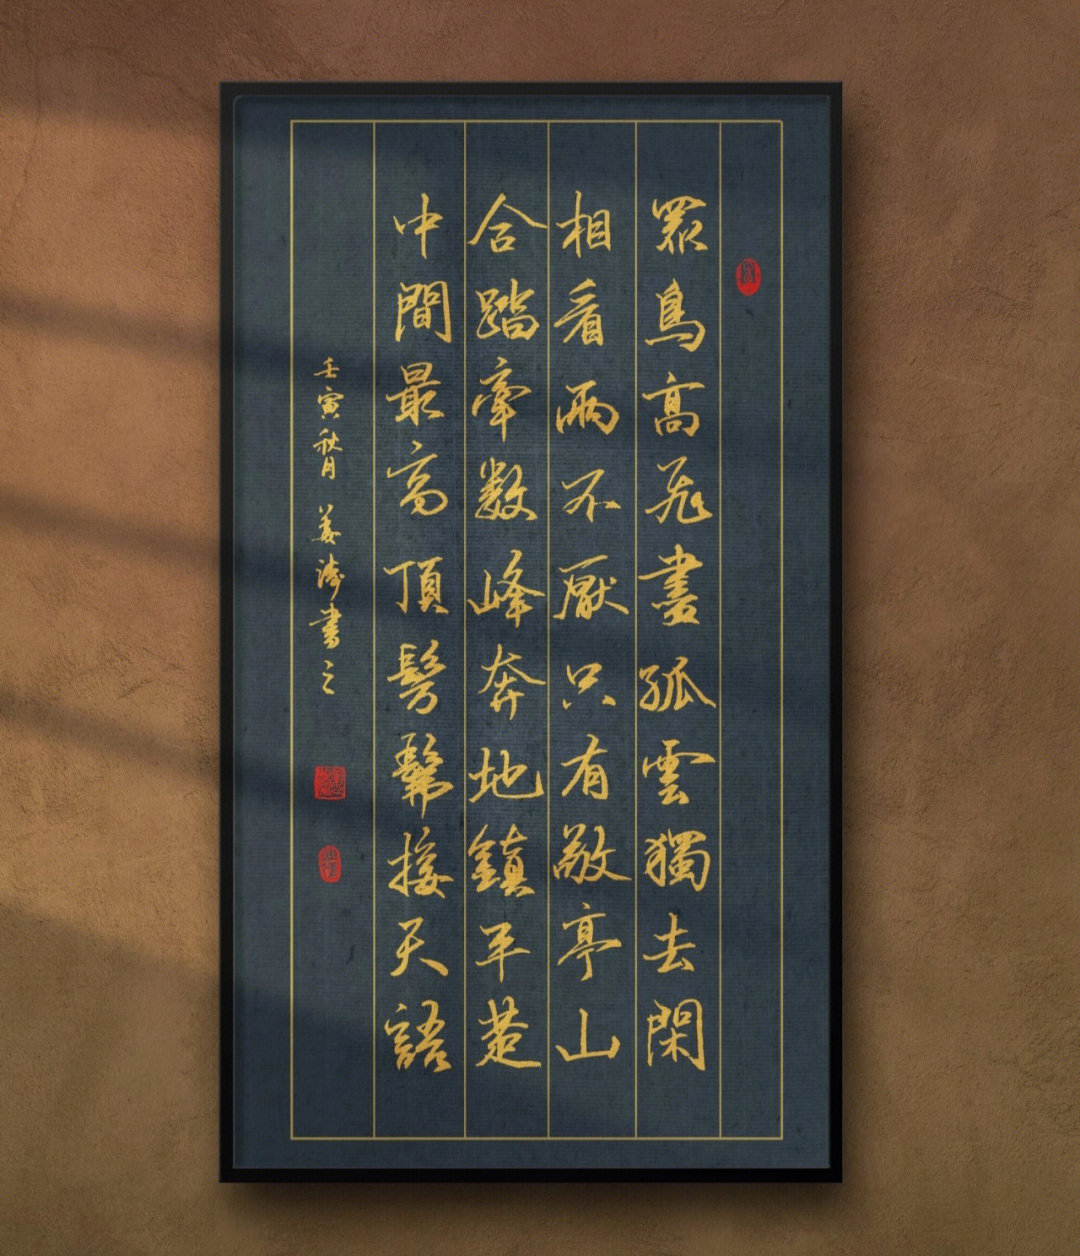 眾鳥高飛盡孤雲獨去閑
相看兩不厭只有敬亭山
合踏牽數峰奔地鎮平楚
中間最高頂髣髴接天語
壬寅秋月 姜濤書之